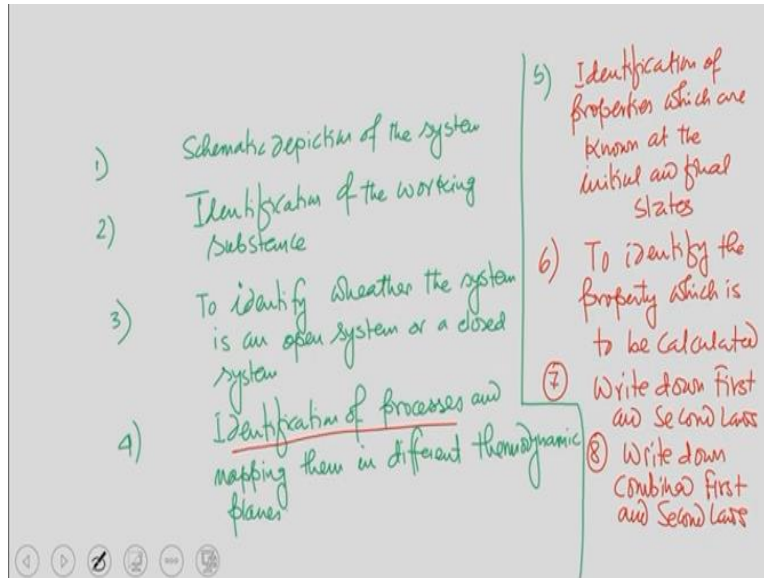 1) Schematic Depiction of the system
2) Identification of the working
substance
3) To identify wheather the system
is an open system or a closed
system
4) Identification of processes and
mapping them in different thermodynamic
planes
5) Identification of
properties which are
known at the
initial and final
states
6) To identify the
property which is
to be calculated
7 Write down First
and Second Laws
8 Write down
combined First
and Second Laws